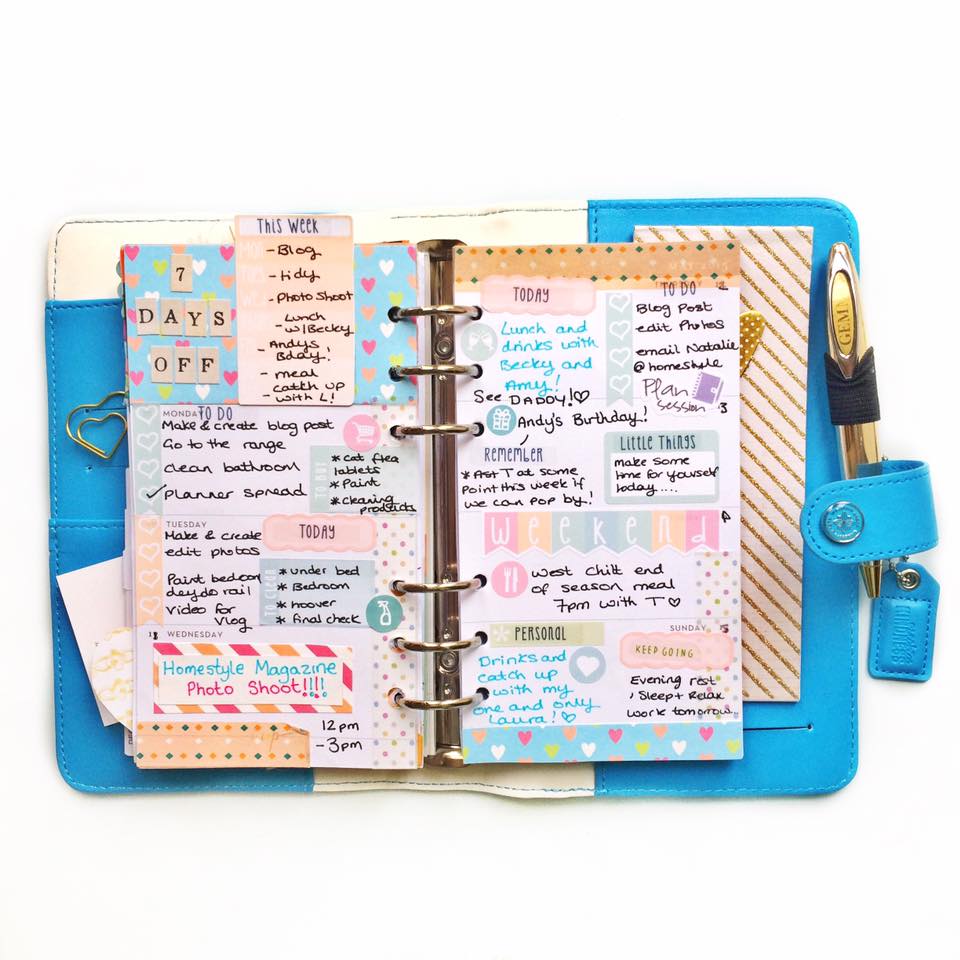 7
DAYS
OFF
This Week
- Blog
- tidy
- Photo Shoot
Lunch
- w/Becky
- Andys
Bday!
- meal
catch up
- with L!
MONDAY
TO DO
Make & create blog post
Go to the range
clean bathroom
✓ planner spread
TO BUY
* Cat flea
tablets
* Paint
* Cleaning
products
TUESDAY
Make & create
edit photos
Paint bedroom
deydo rail
video for
vlog
TODAY
TO CLEAN
* under bed
* Bedroom
* hoover
* final check
WEDNESDAY
Homestyle Magazine
Photo Shoot!!!!
12pm
- 3pm
TODAY
Lunch and
drinks with
Becky and
Amy!
See DADDY!♡
TO DO
Blog Post
edit Photos
email Natalie
@homestyle
Plan
session
Andy's Birthday!
REMEMBER
* Ask T at some
Point this week if
we can pop by!
Little Things
make some
time for yourself
today.....
weekend
West Chilt end
of season meal
7pm with T♡
* PERSONAL
Drinks and
catch up
with my
one and only
Laura! ♡
SUNDAY
KEEP GOING
Evening rest
, Sleep + Relax
work tomorrow...
GEM